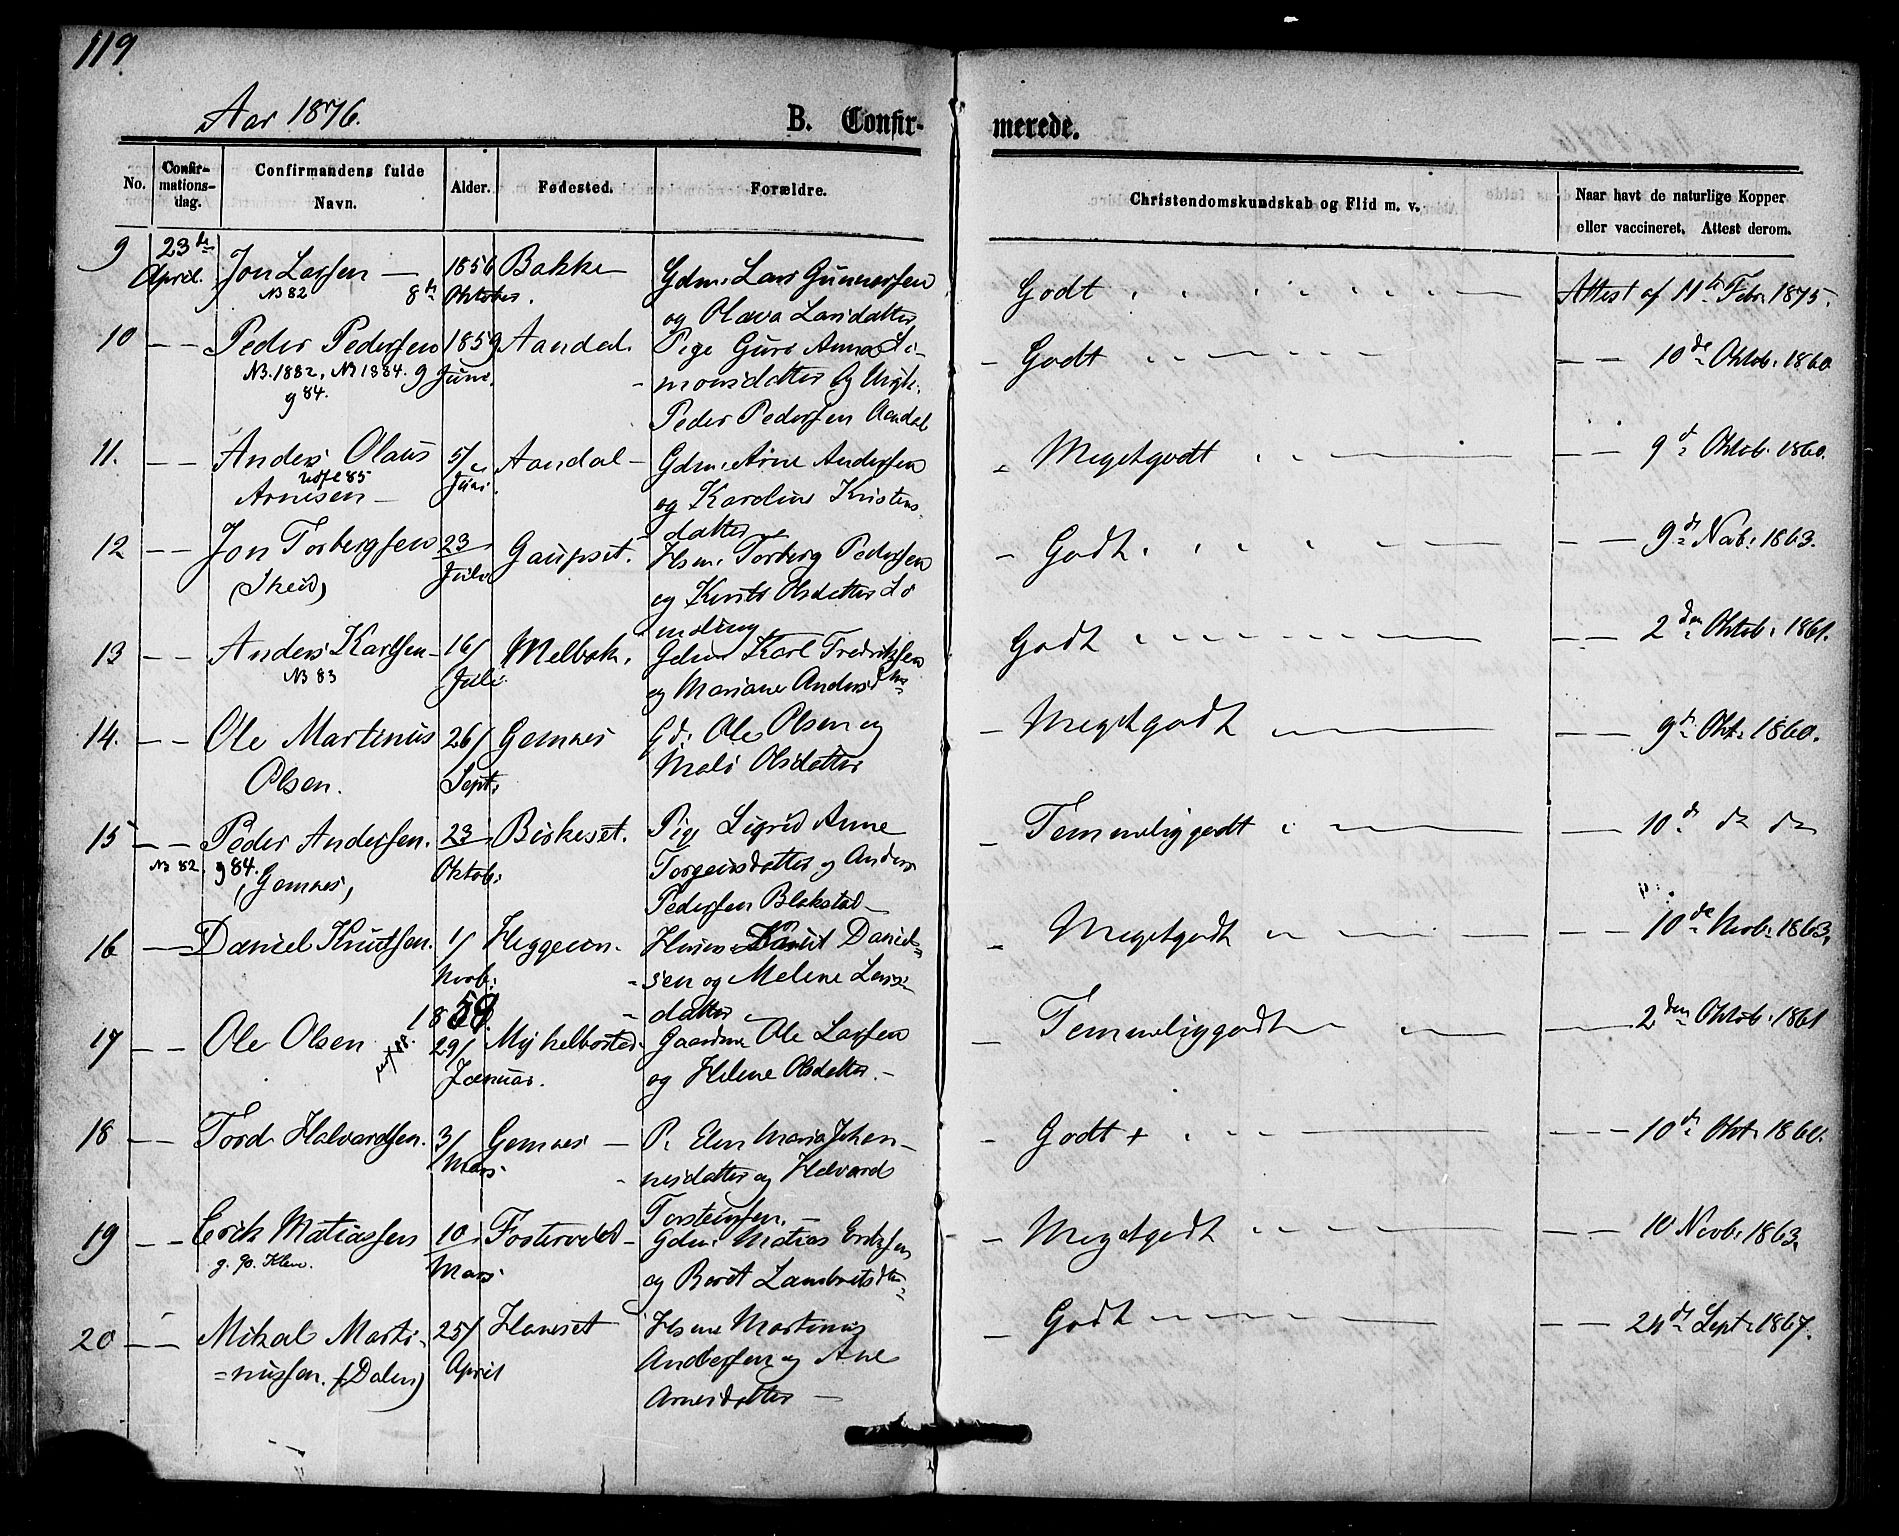 119
Aar 1876.
B. Confir- merede.
No. Confir- mations- dag. Confirmandens fulde Navn. Alder. Fødested. Forældre. Christendomskundskab og Flid m. v. Naar havt de naturlige Kopper eller vaccineret, Attest derom.
9 23de April. Jon Larsen — 8de 1856 Oktober. Bakke Gdm. Lars Gunnersen Godt Attest af 11te Febr. 1875.
N 82 og Olava Larsdatter
10 — — Peder Pedersen 1859 Aandal. Pige Guri Anna Si- Godt — — 10de Oktob. 1860
N. 1882, N 1884. 9 Juni. monsdatter og Ungk.
g 84. Peder Pedersen Aandal
11. — — Anders Olaus 5/ Juni. Aandal — Gdm. Arne Andersen Megetgodt — — 9d Oktob. 1860.
85
Arnesen — og Karoline Kristens-
datter
12 — — Jon Torbergsen 23 Juli Gaupset. Hsm. Torberg Pedersen Godt. — — 9d Nob. 1863.
(Skeid) og Olsdatter
13 — — Anders Karlsen 16/ Juli Melbøk. Gdm Karl Fredriksen Godt — — 2den Oktob. 1861.
N 83 og Mariane Anders
14. — — Ole Martinus 26/ Gemnes Gd. Ole Olsen og Megetgodt — — 9d Okt. 1860.
Olsen. Sept. Mali Olsdatter
15 — — Peder Andersen. 23 Birkeset. Pige Sigrid Anne Temmeliggodt — — 10d do do
N 82. g 84. (Gemnes) Oktob. Torgeirsdatter og Anders
Pedersen Blakstad
16 — Daniel Knutsen. 1/ Heggeim. Husm. Knut Daniel- Megetgodt — — 10de Novb. 1863.
Novb. sen og Melene Lars-
datter
17 — — Ole Olsen 1859. 29/ Myhelbostad. Gaardm. Ole Larsen Temmeliggodt — — 2den Oktob. 1861
Januar. og Helene Olsdatter. —
18 — — Tord Halvardsen. 3/ Gemnes — P. Elen Maria Johan- Godt + — — 10d Okt. 1860.
Mars nesdatter og Halvard
Torsteinsen.
19 — — Erik Matiassen 10 Fostervold — Gdm. Matias Eriksen Megetgodt — — 10 Novb. 1863.
g. 90. Mars. og Berit Lambretsdtr
20 — — Mikal Marti- 25/ Hanset Hsm Martinus Godt — — 24d Sept. 1867.
=nussen. (Dalen) April Andersen og Ane
Arnesdatter —